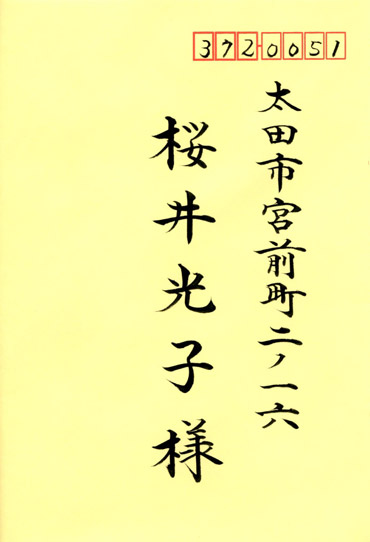 372-0051
太田市宮前町二ノ一六
桜井光子様